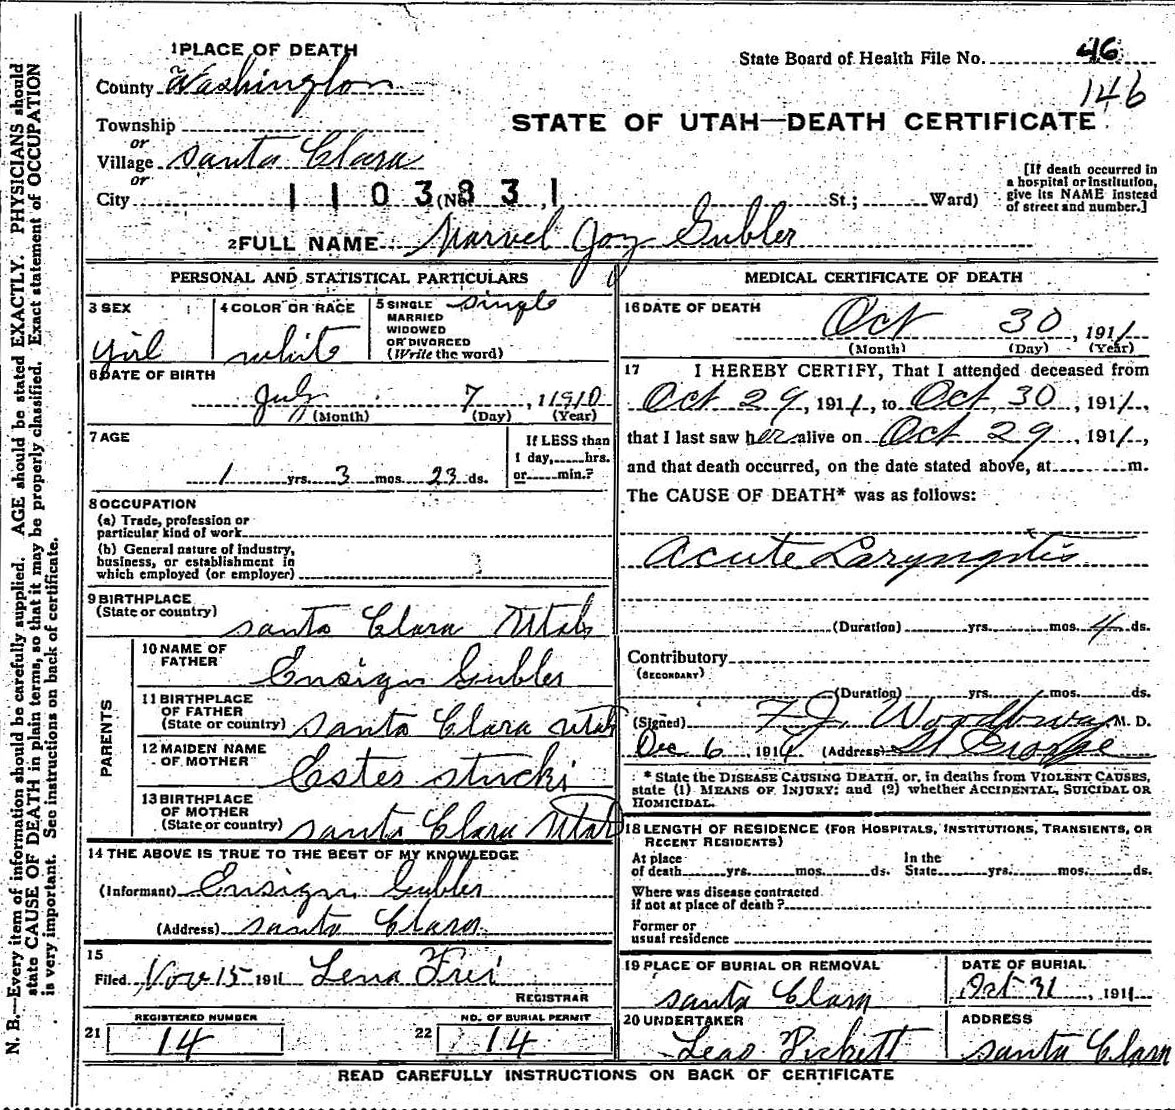 N. B.—Every item of information should be carefully supplied. AGE should be stated EXACTLY. PHYSICIANS should
state CAUSE OF DEATH in plain terms, so that it may be properly classified. Exact statement of OCCUPATION
is very important. See instructions on back of certificate.
1 PLACE OF DEATH
State Board of Health File No. 46
County Washington
146
Township
STATE OF UTAH—DEATH CERTIFICATE
or
Village Santa Clara
or
City (No. St.; Ward)
1103831
[If death occurred in
a hospital or institution,
give its NAME instead
of street and number.]
2 FULL NAME Marvel Joy Gubler
PERSONAL AND STATISTICAL PARTICULARS
3 SEX
girl
4 COLOR OR RACE
white
5 SINGLE
MARRIED
WIDOWED
OR DIVORCED
(Write the word)
single
6 DATE OF BIRTH
July 7, 1910
(Month) (Day) (Year)
7 AGE
1 yrs. 3 mos. 23 ds.
If LESS than
1 day, hrs.
or min.?
8 OCCUPATION
(a) Trade, profession or
particular kind of work
(b) General nature of industry,
business, or establishment in
which employed (or employer)
9 BIRTHPLACE
(State or country)
Santa Clara Utah
PARENTS
10 NAME OF
FATHER
Ensign Gubler
11 BIRTHPLACE
OF FATHER
(State or country)
Santa Clara Utah
12 MAIDEN NAME
OF MOTHER
Ester Stucki
13 BIRTHPLACE
OF MOTHER
(State or country)
Santa Clara Utah
14 THE ABOVE IS TRUE TO THE BEST OF MY KNOWLEDGE
(Informant) Ensign Gubler
(Address) Santa Clara
15
Filed Nov 15 1911 Lena Frei
REGISTRAR
REGISTERED NUMBER
21 14
NO. OF BURIAL PERMIT
22 14
MEDICAL CERTIFICATE OF DEATH
16 DATE OF DEATH
Oct 30, 1911
(Month) (Day) (Year)
17 I HEREBY CERTIFY, That I attended deceased from
Oct 29, 1911, to Oct 30, 1911,
that I last saw her alive on Oct 29, 1911,
and that death occurred, on the date stated above, at m.
The CAUSE OF DEATH* was as follows:
Acute Laryngitis
(Duration) yrs. mos. 4 ds.
Contributory
(SECONDARY)
(Duration) yrs. mos. ds.
(Signed) F J Woodbury M. D.
Dec 6 191 (Address) St George
* State the DISEASE CAUSING DEATH, or, in deaths from VIOLENT CAUSES,
state (1) MEANS OF INJURY; and (2) whether ACCIDENTAL, SUICIDAL OR
HOMICIDAL.
18 LENGTH OF RESIDENCE (FOR HOSPITALS, INSTITUTIONS, TRANSIENTS, OR
RECENT RESIDENTS)
At place In the
of death yrs. mos. ds. State yrs. mos. ds.
Where was disease contracted
if not at place of death?
Former or
usual residence
19 PLACE OF BURIAL OR REMOVAL
Santa Clara
DATE OF BURIAL
Oct 31, 1911
20 UNDERTAKER
Pickett
ADDRESS
Santa Clara
READ CAREFULLY INSTRUCTIONS ON BACK OF CERTIFICATE